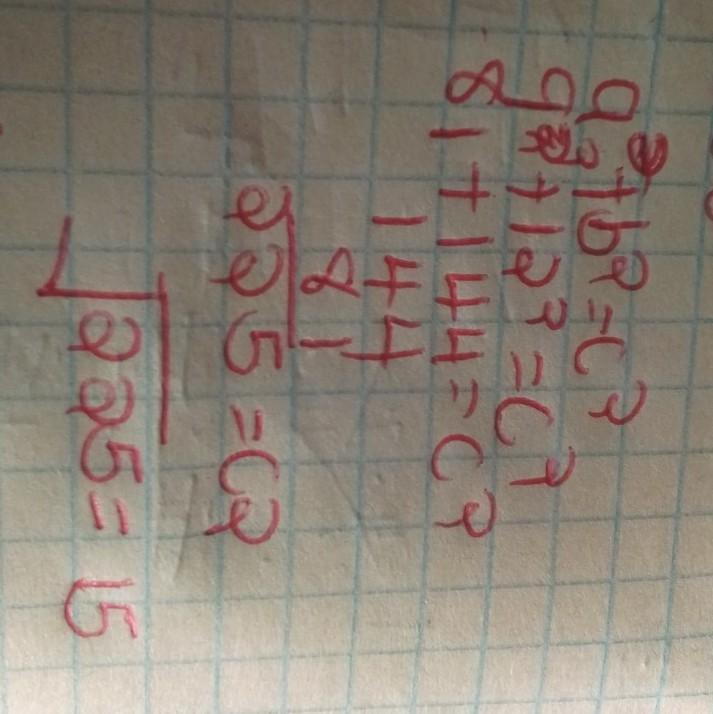 a² + b² = c²
9² + 12² = c²
81 + 144 = c²
144
81
225 = c²
√225 = 15